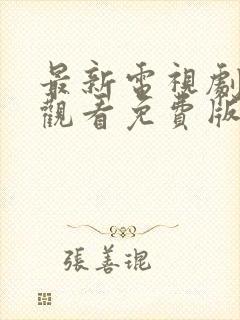 最新電視劇
觀看免費版
張善琨